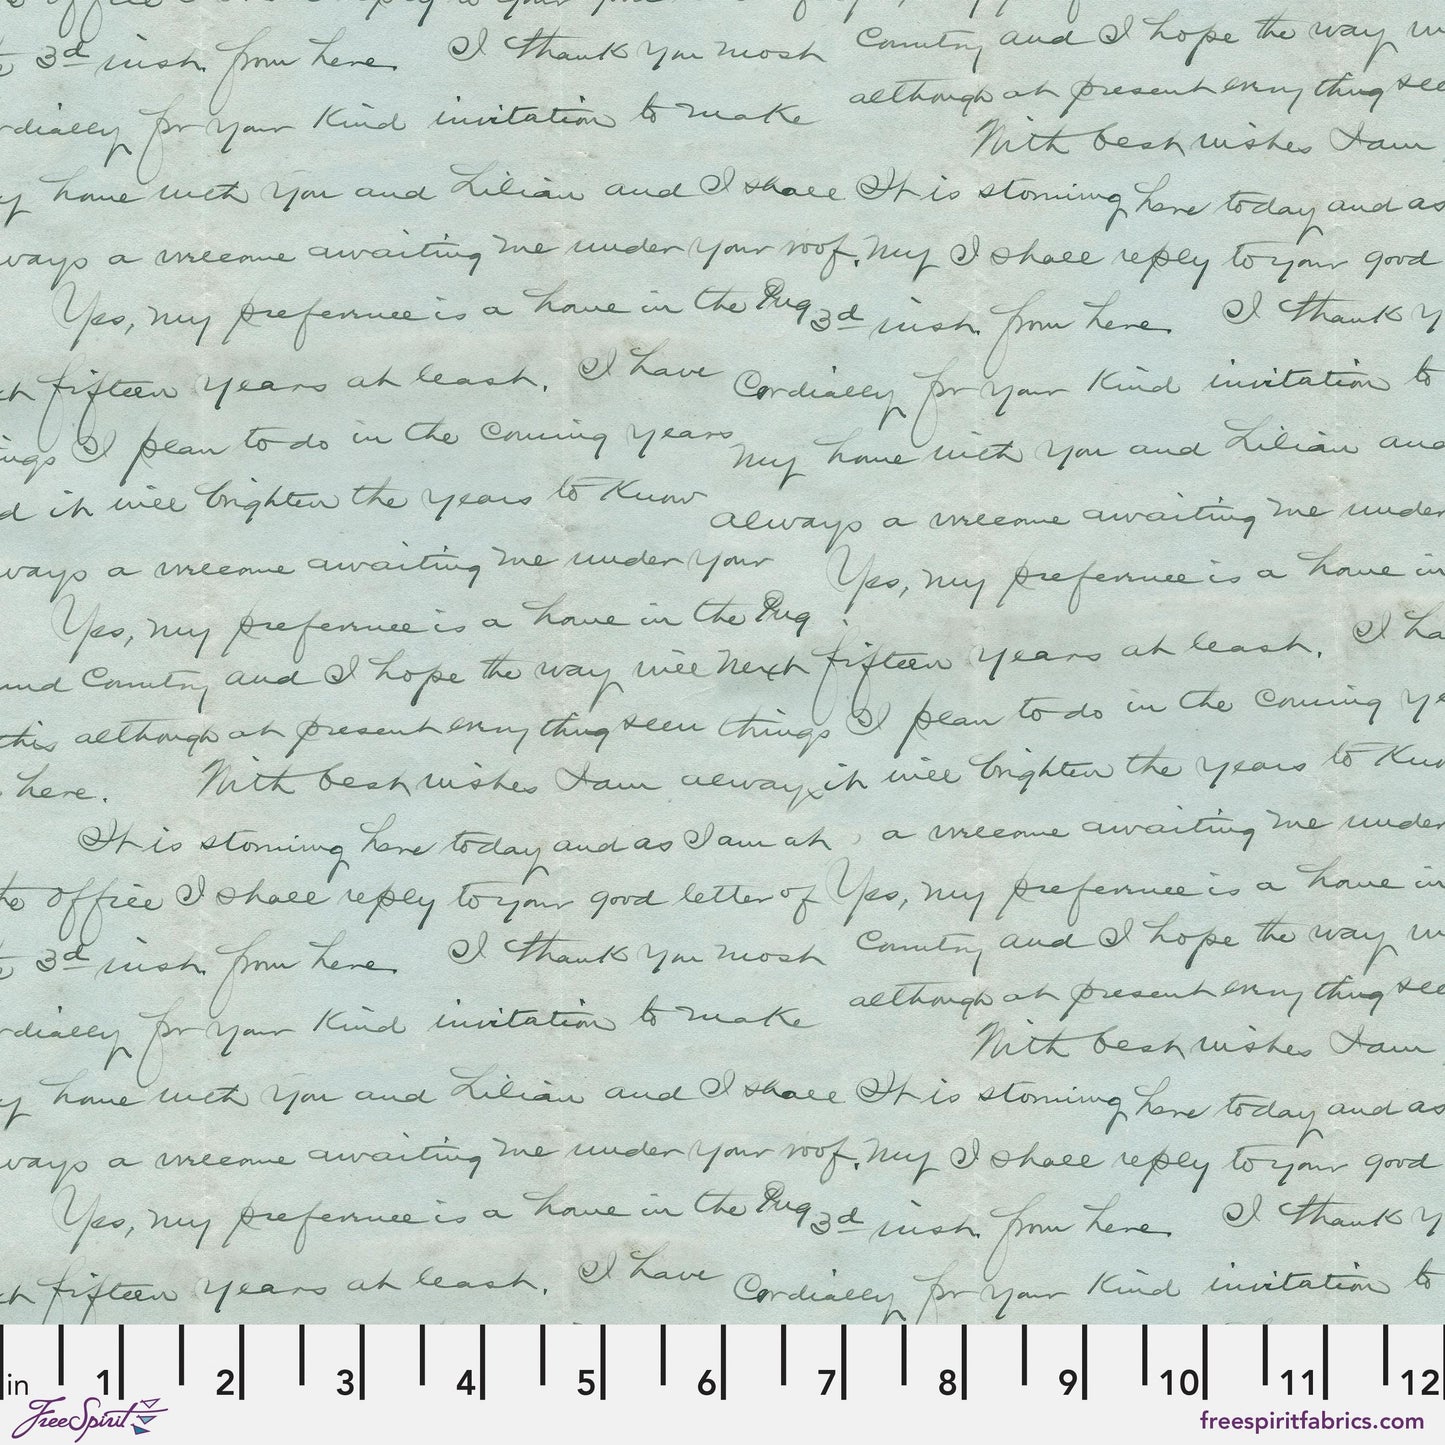 3d inst. from here. I thank you most
Country and I hope the way
although at present everything
cordially for your kind invitation to make
With best wishes I am
home with you and Lilian and I shall
It is storming here today and as
always a welcome awaiting me under your roof. My
I shall reply to your good
Yes, my preference is a home in the
3d inst. from here. I thank
fifteen years at least. I have
Cordially for your kind invitation to
I plan to do in the coming years
my home with you and Lilian and
it will brighten the years to know
always a welcome awaiting me under
a welcome awaiting me under your
Yes, my preference is a home in
Yes, my preference is a home in the
Country and I hope the way will next
fifteen years at least. I
this although at present everything seem
things I plan to do in the coming
here. With best wishes I am always
it will brighten the years to
It is storming here today and as I am at
a welcome awaiting me under
the office I shall reply to your good letter of
Yes, my preference is a home in
3d inst. from here. I thank you most
Country and I hope the way
although at present everything
cordially for your kind invitation to make
With best wishes I am
home with you and Lilian and I shall
It is storming here today and as
a welcome awaiting me under your roof. My
I shall reply to your good
Yes, my preference is a home in the
3d inst. from here. I thank
fifteen years at least. I have
Cordially for your kind invitation to
in 1 2 3 4 5 6 7 8 9 10 11 12
FreeSpirit
freespiritfabrics.com